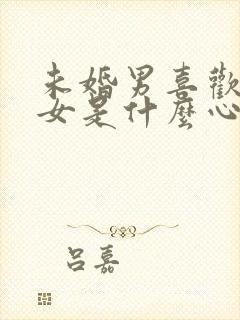 未婚男喜歡
女是什麼心
呂嘉